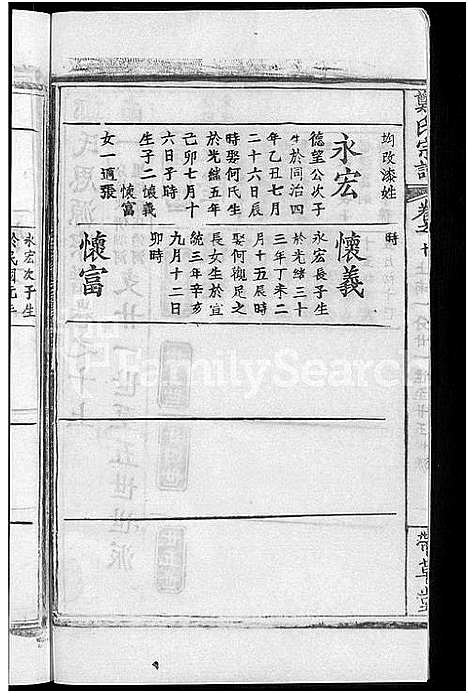 鄭氏宗譜
卷之十上
帶草堂
均改漆姓
永宏
德望公次子
生於同治四
年乙丑七月
二十六日辰
時娶何氏生
於光緒五年
己卯七月十
六日子時
生子二懷義
懷富
女一適張
時
懷義
永宏長子生
於光緒三十
三年丁未二
月十五辰時
娶何觀足之
長女生於宣
統三年辛亥
九月十二日
卯時
懷富
永宏次子生
於民國元年
FamilySearch